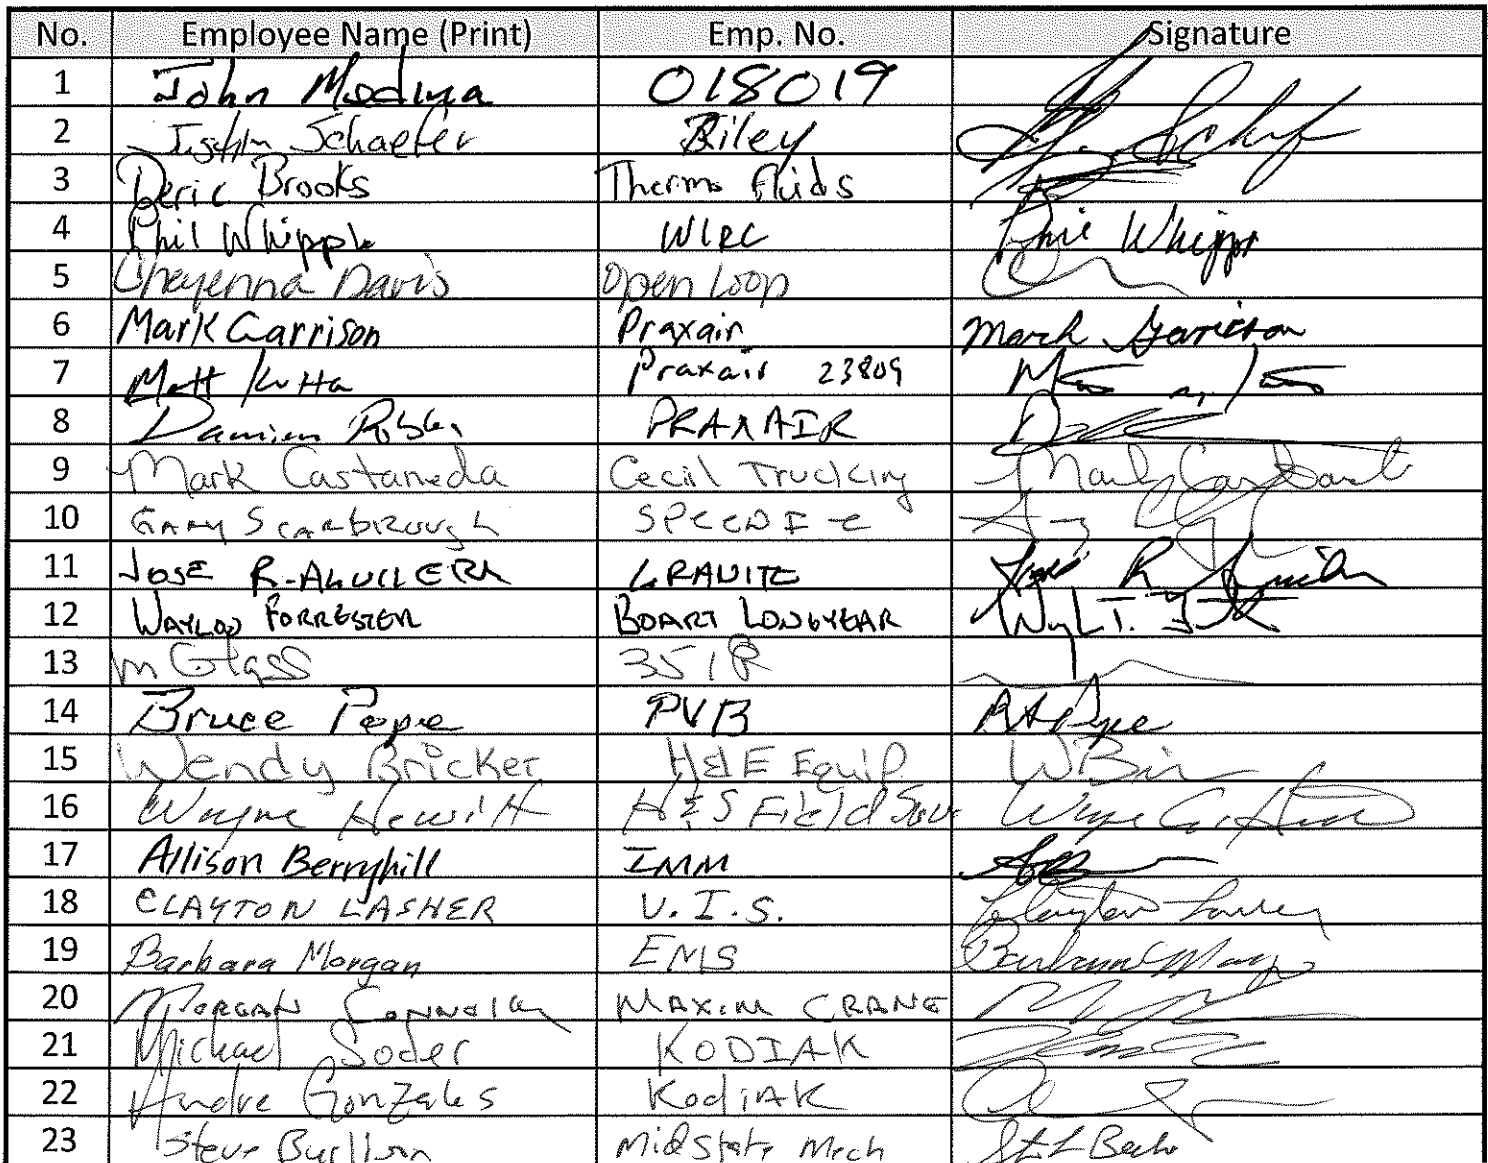 No. Employee Name (Print) Emp. No. Signature
1 John Medina 018019
2 Justin Schaefer Riley
3 Deric Brooks Thermo Fluids
4 Phil Whipple WIRC Phil Whipple
5 Cheyenna Davis Open Loop
6 Mark Garrison Praxair Mark Garrison
7 Matt Kutta Praxair 23809
8 Damien PRAXAIR
9 Mark Castaneda Cecil Trucking Mark
10 GARY SCARBROUGH SPEEDIE
11 JOSE R. AGUILERA GRANITE Jose R
12 WAYLON FORRESTER BOART LONGYEAR
13 m Glass 351R
14 Bruce Pape PVB
15 Wendy Bricker H&E Equip.
16 Wayne Hewitt H&S Field Serv Wayne
17 Allison Berryhill IMM
18 CLAYTON LASHER V.I.S. Clayton
19 Barbara Morgan EMS Barbara
20 MORGAN CONNOLLY MAXIM CRANE
21 Michael Soder KODIAK
22 Andre Gonzales KodiAK
23 Steve Midstate Mech